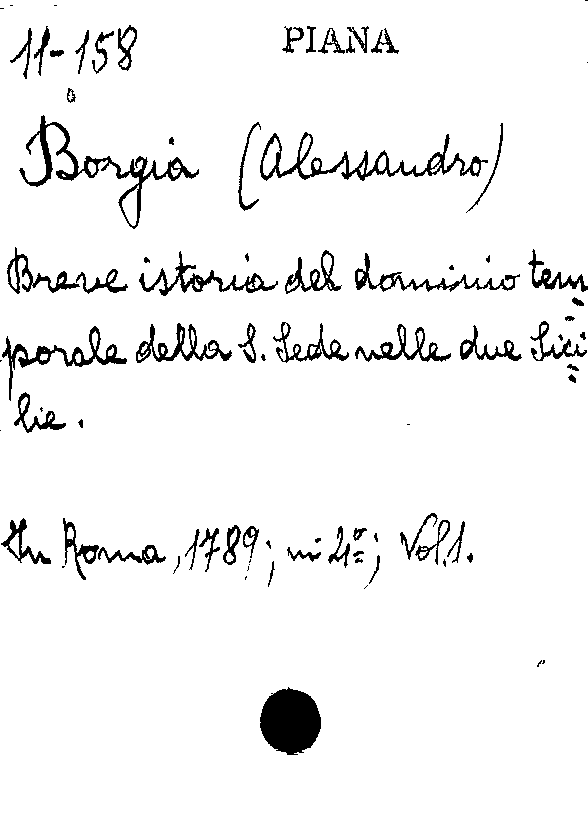 11-158 PIANA
Borgia (Alessandro)
Breve istoria del dominio tem=
porale della S. Sede nelle due Sici=
lie.
In Roma, 1789; in 4º; Vol. 1.